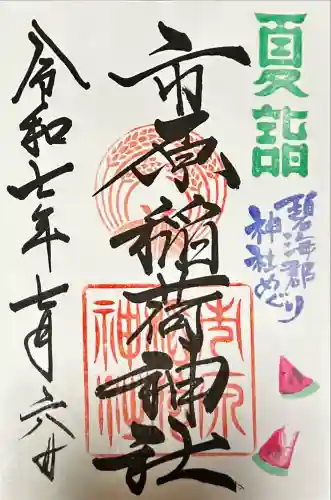 夏詣
碧海郡
神社めぐり
市原稲荷神社
令和七年七月六日